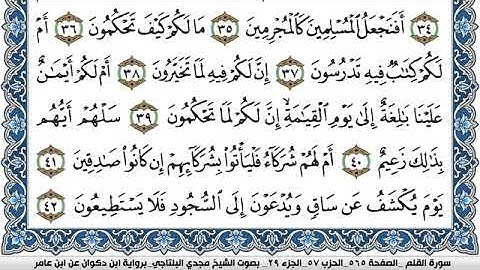 ٣٤ أَفَنَجْعَلُ الْمُسْلِمِينَ كَالْمُجْرِمِينَ ٣٥ مَا لَكُمْ كَيْفَ تَحْكُمُونَ ٣٦ أَمْ
لَكُمْ كِتَٰبٌ فِيهِ تَدْرُسُونَ ٣٧ إِنَّ لَكُمْ فِيهِ لَمَا تَخَيَّرُونَ ٣٨ أَمْ لَكُمْ أَيْمَٰنٌ
عَلَيْنَا بَٰلِغَةٌ إِلَىٰ يَوْمِ الْقِيَٰمَةِ إِنَّ لَكُمْ لَمَا تَحْكُمُونَ ٣٩ سَلْهُمْ أَيُّهُم
بِذَٰلِكَ زَعِيمٌ ٤٠ أَمْ لَهُمْ شُرَكَاءُ فَلْيَأْتُوا بِشُرَكَائِهِمْ إِن كَانُوا صَٰدِقِينَ ٤١
يَوْمَ يُكْشَفُ عَن سَاقٍ وَيُدْعَوْنَ إِلَى السُّجُودِ فَلَا يَسْتَطِيعُونَ ٤٢
سورة القلم _ الصفحة ٥٦٥_ الحزب ٥٧_ الجزء ٢٩_ بصوت الشيخ مجدي البلتاجي_ برواية ابن ذكوان عن ابن عامر